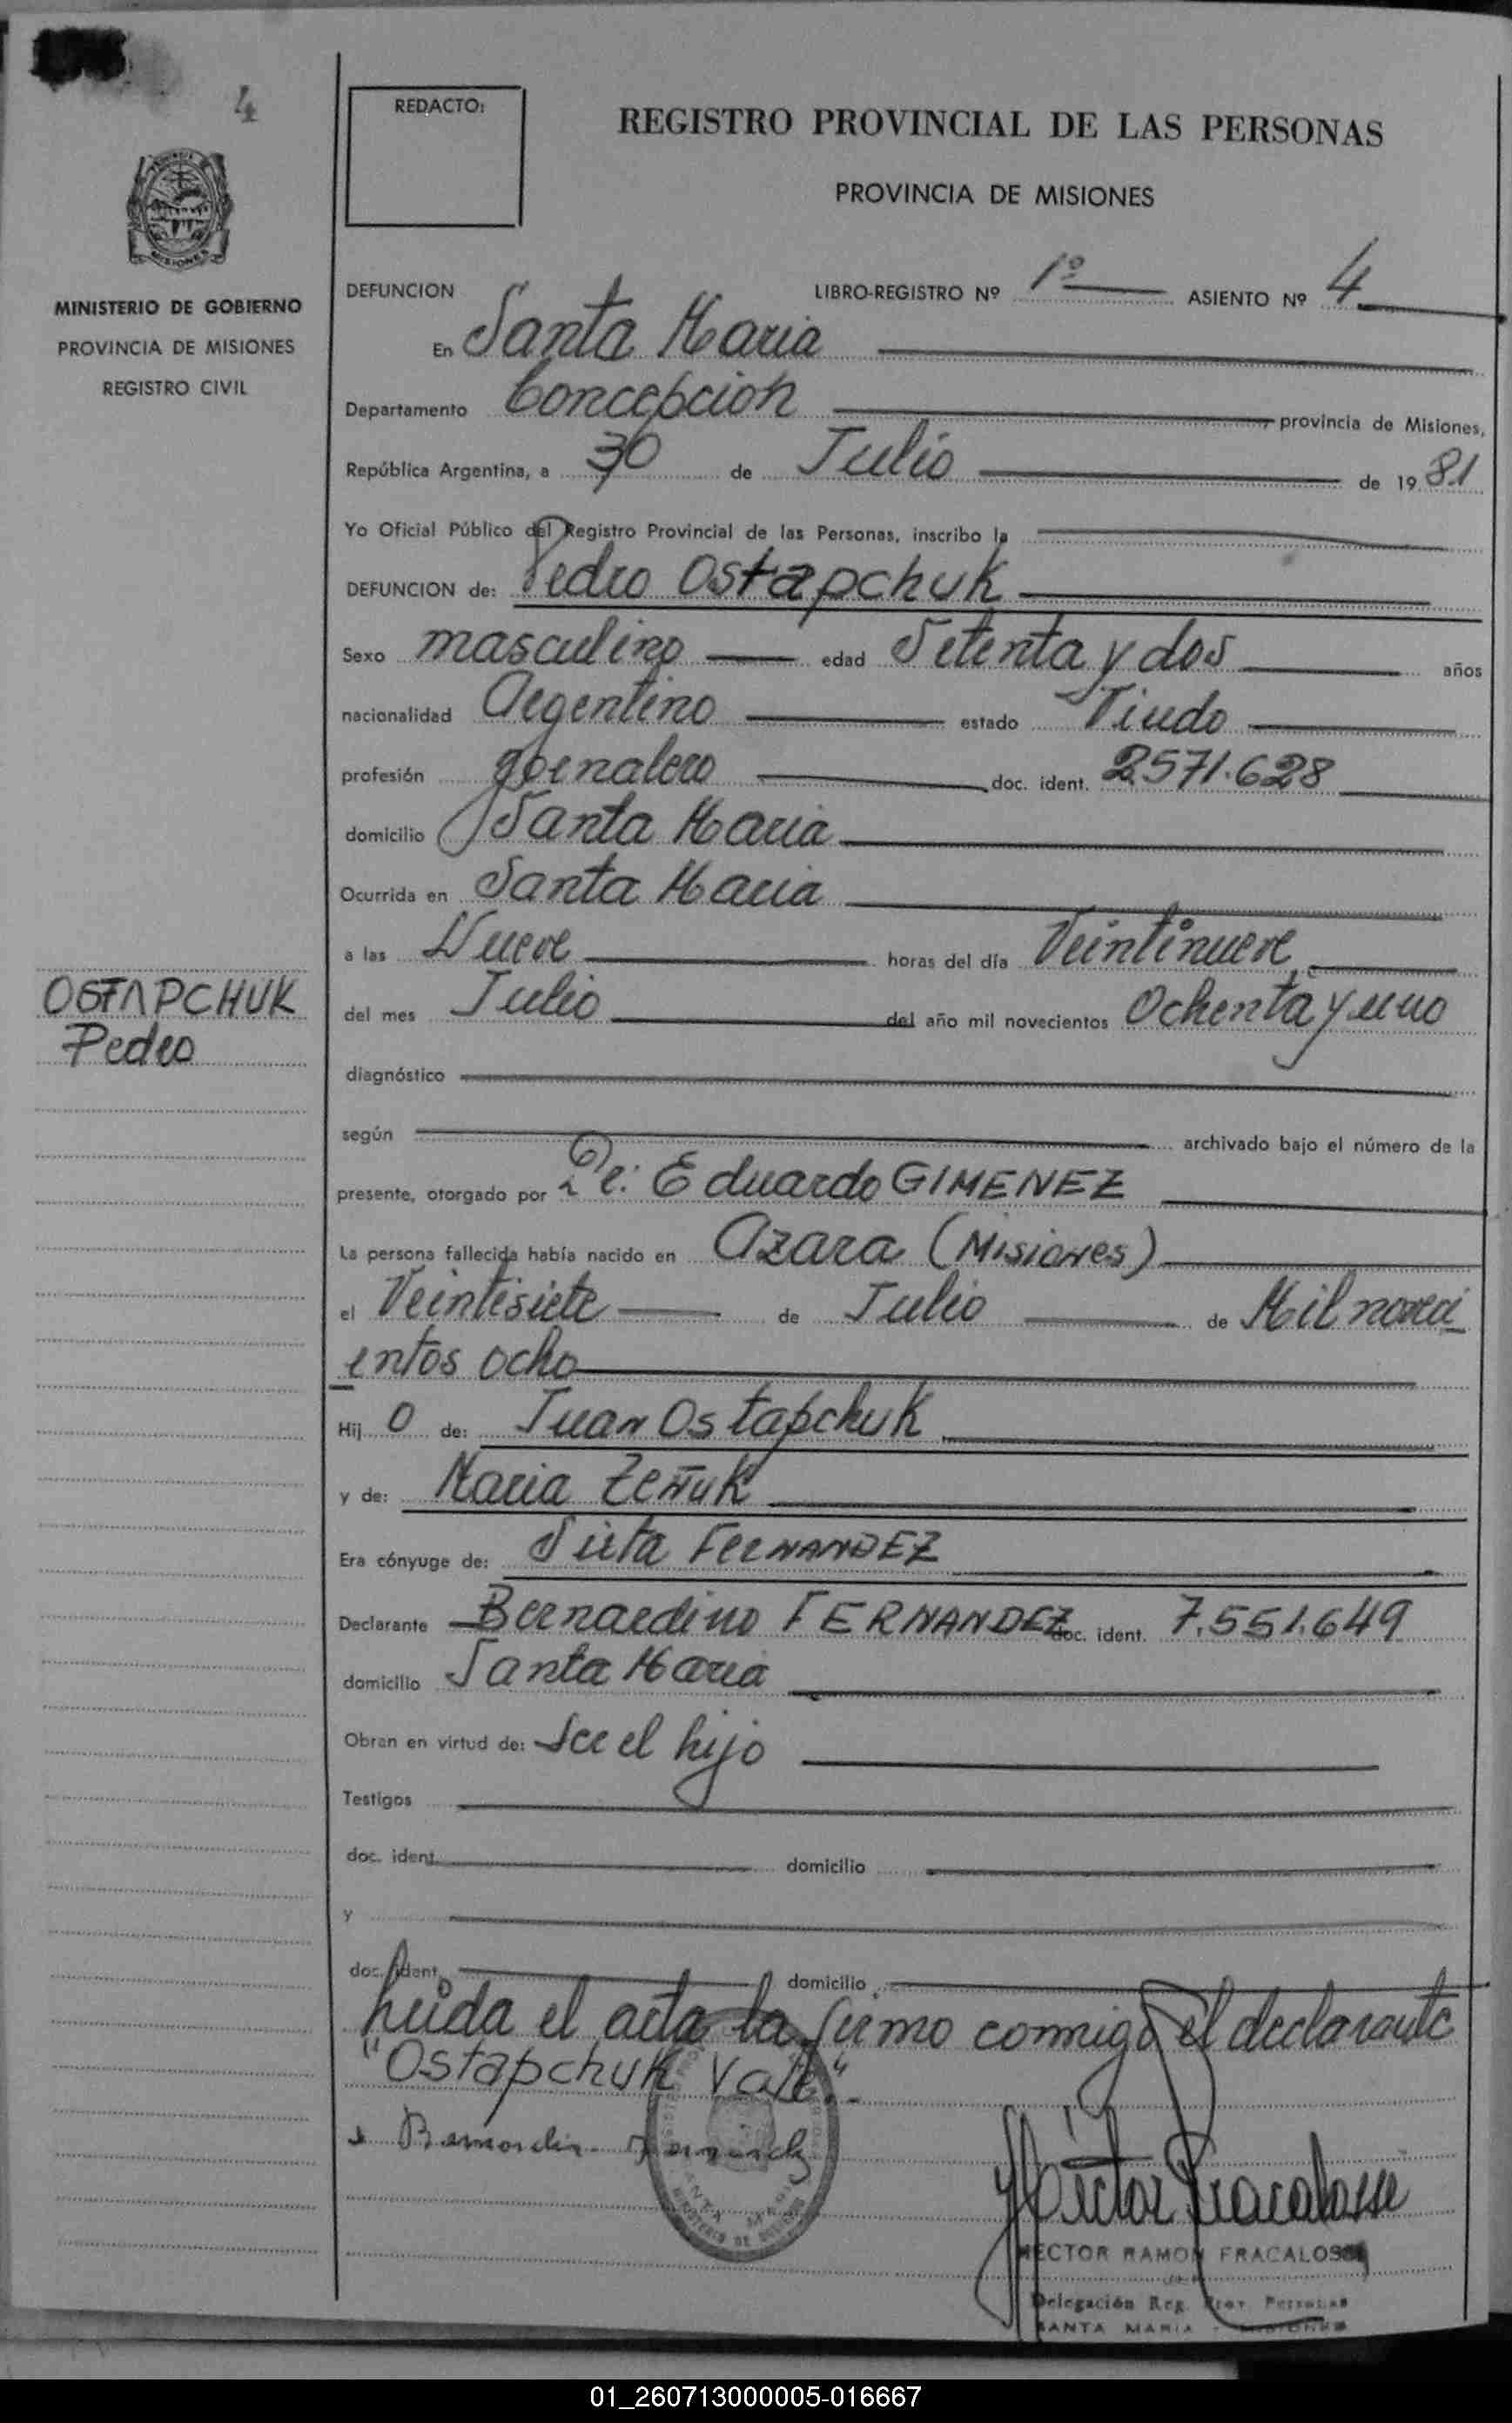 4
REDACTO:
REGISTRO PROVINCIAL DE LAS PERSONAS
PROVINCIA DE MISIONES
MISIONES
MINISTERIO DE GOBIERNO
PROVINCIA DE MISIONES
REGISTRO CIVIL
DEFUNCION LIBRO-REGISTRO Nº 1º ASIENTO Nº 4
En Santa Maria
Departamento Concepcion provincia de Misiones,
República Argentina, a 30 de Julio de 1981
Yo Oficial Público del Registro Provincial de las Personas, inscribo la
DEFUNCION de: Pedro Ostapchuk
Sexo masculino edad Setenta y dos años
nacionalidad Argentino estado Viudo
profesión jornalero doc. ident. 2.571.628
domicilio Santa Maria
Ocurrida en Santa Maria
a las Nueve horas del día Veintinueve
OSTAPCHUK
Pedro
del mes Julio del año mil novecientos Ochenta y uno
diagnóstico
según archivado bajo el número de la
presente, otorgado por Eduardo GIMENEZ
La persona fallecida había nacido en Azara (Misiones)
el Veintisiete de Julio de Mil noveci
entos ocho
Hij o de: Juan Ostapchuk
y de: Maria Zeñuk
Era cónyuge de: Sixta FERNANDEZ
Declarante Bernardino FERNANDEZ doc. ident. 7.551.649
domicilio Santa Maria
Obran en virtud de: Ser el hijo
Testigos
doc. ident. domicilio
y
doc. ident. domicilio
Leida el acta la firmo conmigo el declarante
"Ostapchuk Vale".
Hector Fracalossi
HECTOR RAMON FRACALOSSI
Delegación Reg. Prov. Personas
SANTA MARIA - MISIONES
01_260713000005-016667